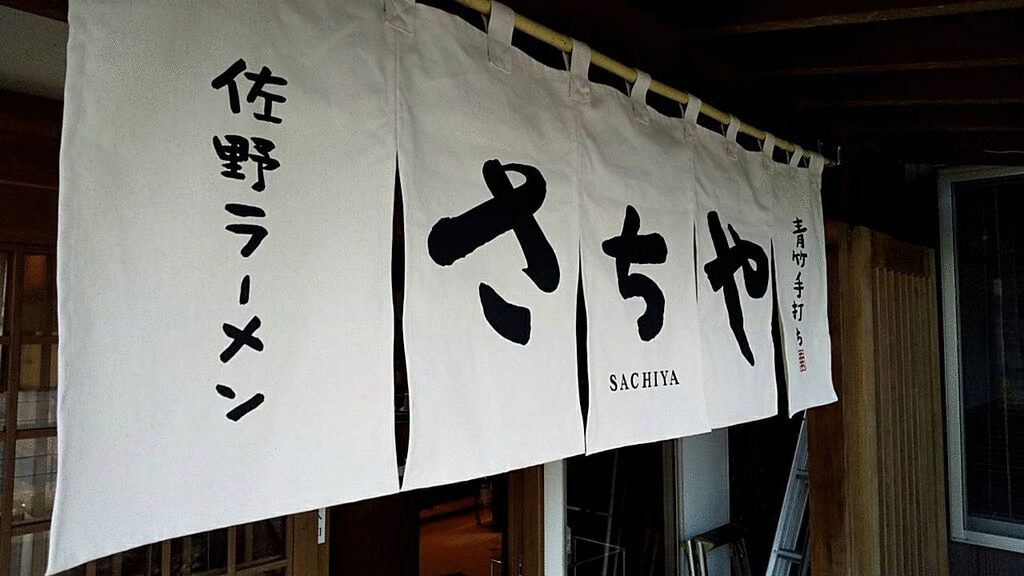 佐野ラーメン
さちや
SACHIYA
青竹手打ち